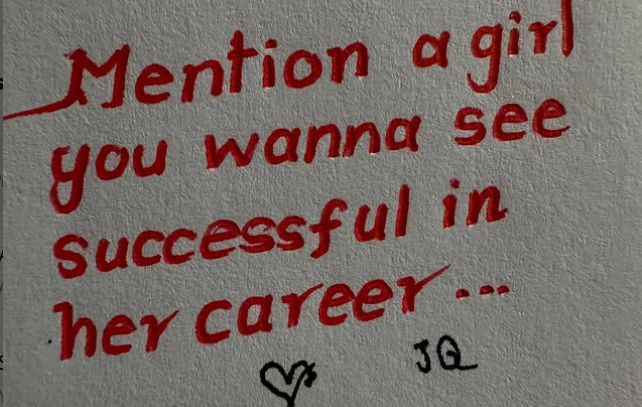 Mention a girl
you wanna see
successful in
her career...
JQ